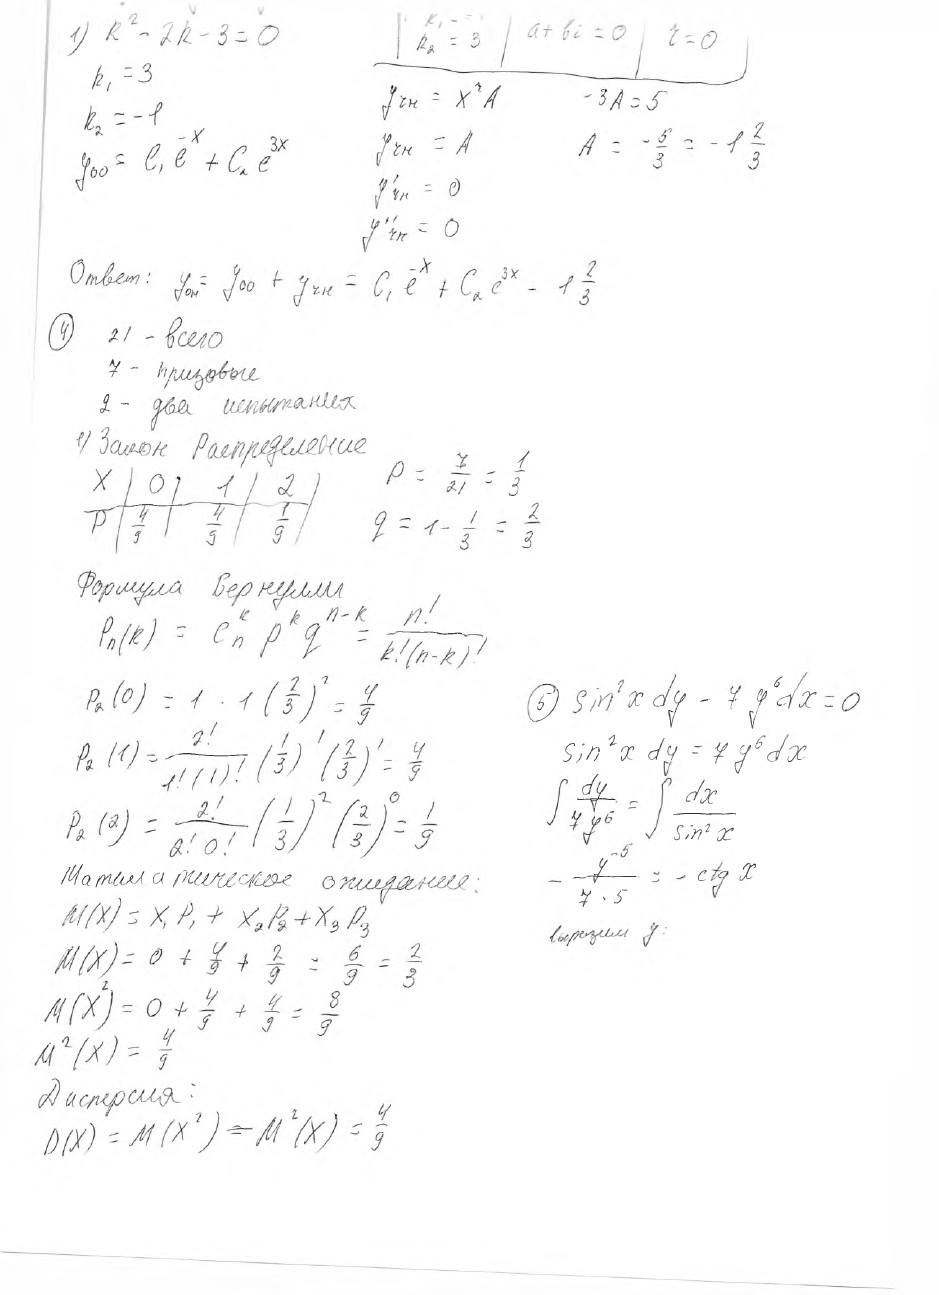 1) k² - 2k - 3 = 0
k₁ = 3
k₂ = -1
y₀₀ = C₁e^{-x} + C₂e^{3x}
k₂ = 3 | a+bi = 0 | r = 0
yчн = x^r A
yчн = A
y'чн = 0
y''чн = 0
-3A = 5
A = -5/3 = -1 2/3
Ответ: yон = y₀₀ + yчн = C₁e^{-x} + C₂e^{3x} - 1 2/3
④ 21 - всего
7 - призовые
2 - два испытания
1) Закон Распределение
X | 0 | 1 | 2
P | 4/9 | 4/9 | 1/9
P = 7/21 = 1/3
q = 1 - 1/3 = 2/3
Формула Бернулли
Pₙ(k) = Cₙ^k p^k q^{n-k} = n!/(k!(n-k)!)
P₂(0) = 1 · 1 (2/3)² = 4/9
P₂(1) = 2!/(1!(1)!) (1/3)¹ (2/3)¹ = 4/9
P₂(2) = 2!/(2! 0!) (1/3)² (2/3)⁰ = 1/9
Математическое ожидание:
M(X) = X₁P₁ + X₂P₂ + X₃P₃
M(X) = 0 + 4/9 + 2/9 = 6/9 = 2/3
M(X²) = 0 + 4/9 + 4/9 = 8/9
M²(X) = 4/9
Дисперсия:
D(X) = M(X²) - M²(X) = 4/9
⑤ sin²x dy - 7y⁶dx = 0
sin²x dy = 7y⁶dx
∫ dy/(7y⁶) = ∫ dx/(sin²x)
- y^{-5}/(7·5) = -ctg x
выразим y: